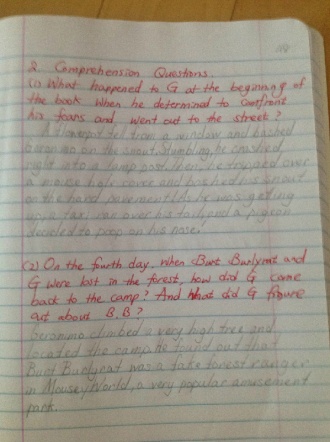 2. Comprehension Questions.
(1) What happened to G at the beginning of
the book when he determined to confront
his fears and went out to the street?
A flowerpot fell from a window and bashed
on the snout. Stumbling, he crashed
right into a lamp post. Then, he tripped over
a mouse hole cover and bashed his snout
on the hard pavement. As he was getting
up, a taxi ran over his tail, and a pigeon
decided to poop on his nose.
(2) On the fourth day, when Burt Burlyrat and
G were lost in the forest, how did G come
back to the camp? And what did G figure
out about B.B?
Geronimo climbed a very high tree and
located the camp. he found out that
Burt Burlyrat was a fake forest ranger
in Mousey World, a very popular amusement
park.